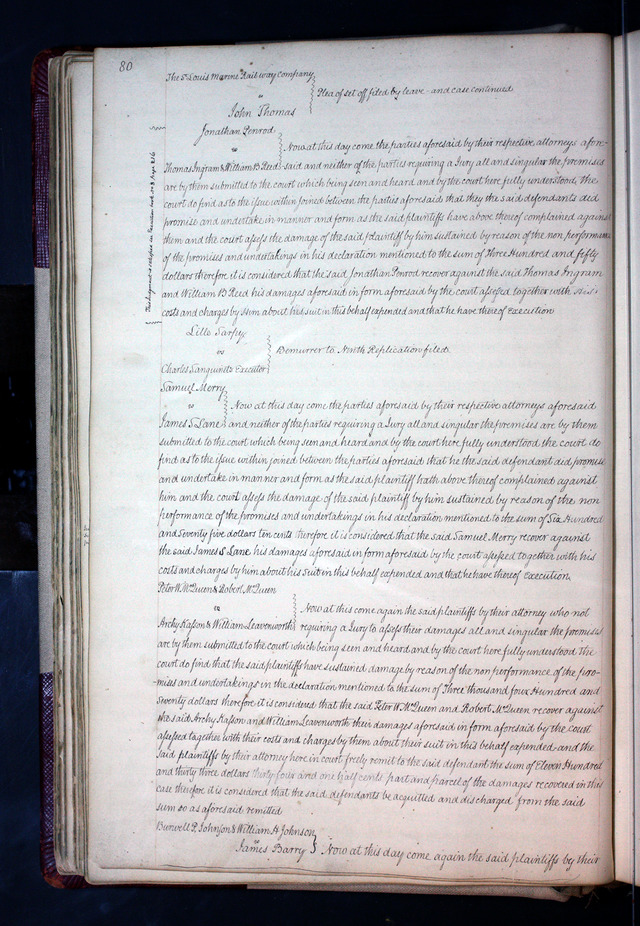 80
The St Louis Marine Rail way Company
vs } Plea of set off filed by leave and case continued
John Thomas
Jonathan Penrod
vs } Now at this day come the parties aforesaid by their respective attorneys afore-
Thomas Ingram & William B Reed said and neither of the parties requiring a Jury all and singular the premises
are by them submitted to the court which being seen and heard and by the court here fully understood, the
court do find as to the issue within joined between the parties aforesaid that they the said defendants did
promise and undertake in manner and form as the said plaintiffs have above thereof complained against
them and the court assess the damage of the said plaintiff by him sustained by reason of the non performance
of the promises and undertakings in his declaration mentioned to the sum of Three Hundred and fifty
dollars therefore it is considered that the said Jonathan Penrod recover against the said Thomas Ingram
and William B Reed his damages aforesaid in form aforesaid by the court assessed together with His
costs and charges by Him about his suit in this behalf expended and that he have there of Execution
This Judgment is satisfied see Execution book page 216
Lille Sarpy
vs } Demurrer to Ninth Replication filed
Charles Sanguinets Executor
Samuel Merry
vs } Now at this day come the parties aforesaid by their respective attorneys aforesaid
James S Lane and neither of the parties requiring a Jury all and singular the premises are by them
submitted to the court which being seen and heard and by the court here fully understood the court do
find as to the issue within joined between the parties aforesaid that he the said defendant did promise
and undertake in manner and form as the said plaintiff hath above thereof complained against
him and the court assess the damage of the said plaintiff by him sustained by reason of the non
performance of the promises and undertakings in his declaration mentioned to the sum of Six Hundred
and Seventy five dollars ten cents therefore it is considered that the said Samuel Merry recover against
the said James S Lane his damages aforesaid in form aforesaid by the court assessed together with his
costs and charges by him about his suit in this behalf expended and that he have thereof execution,
Peter W. McQueen & Robert McQueen
vs } Now at this come again the said plaintiffs by their attorney who not
Archy Kasson & William Leavenworth requiring a Jury to assess their damages all and singular the premises
are by them submitted to the court which being seen and heard and by the court here fully understood The
court do find that the said plaintiffs have sustained damage by reason of the non performance of the pro-
-mises and undertakings in the declaration mentioned to the sum of Three thousand four Hundred and
Seventy dollars therefore it is considered that the said Peter W. McQueen and Robert McQueen recover against
the said Archy Kasson and William Leavenworth their damages aforesaid in form aforesaid by the court
assessed together with their costs and charges by them about their suit in this behalf expended and the
said plaintiffs by their attorney here in court freely remit to the said defendant the sum of Eleven Hundred
and thirty three dollars thirty four and one half cents part and parcel of the damages recovered in this
case therefore it is considered that the said defendants be acquitted and discharged from the said
sum so as aforesaid remitted
Burwell P. Johnson & William H Johnson
vs
James Barry } Now at this day come again the said plaintiffs by their